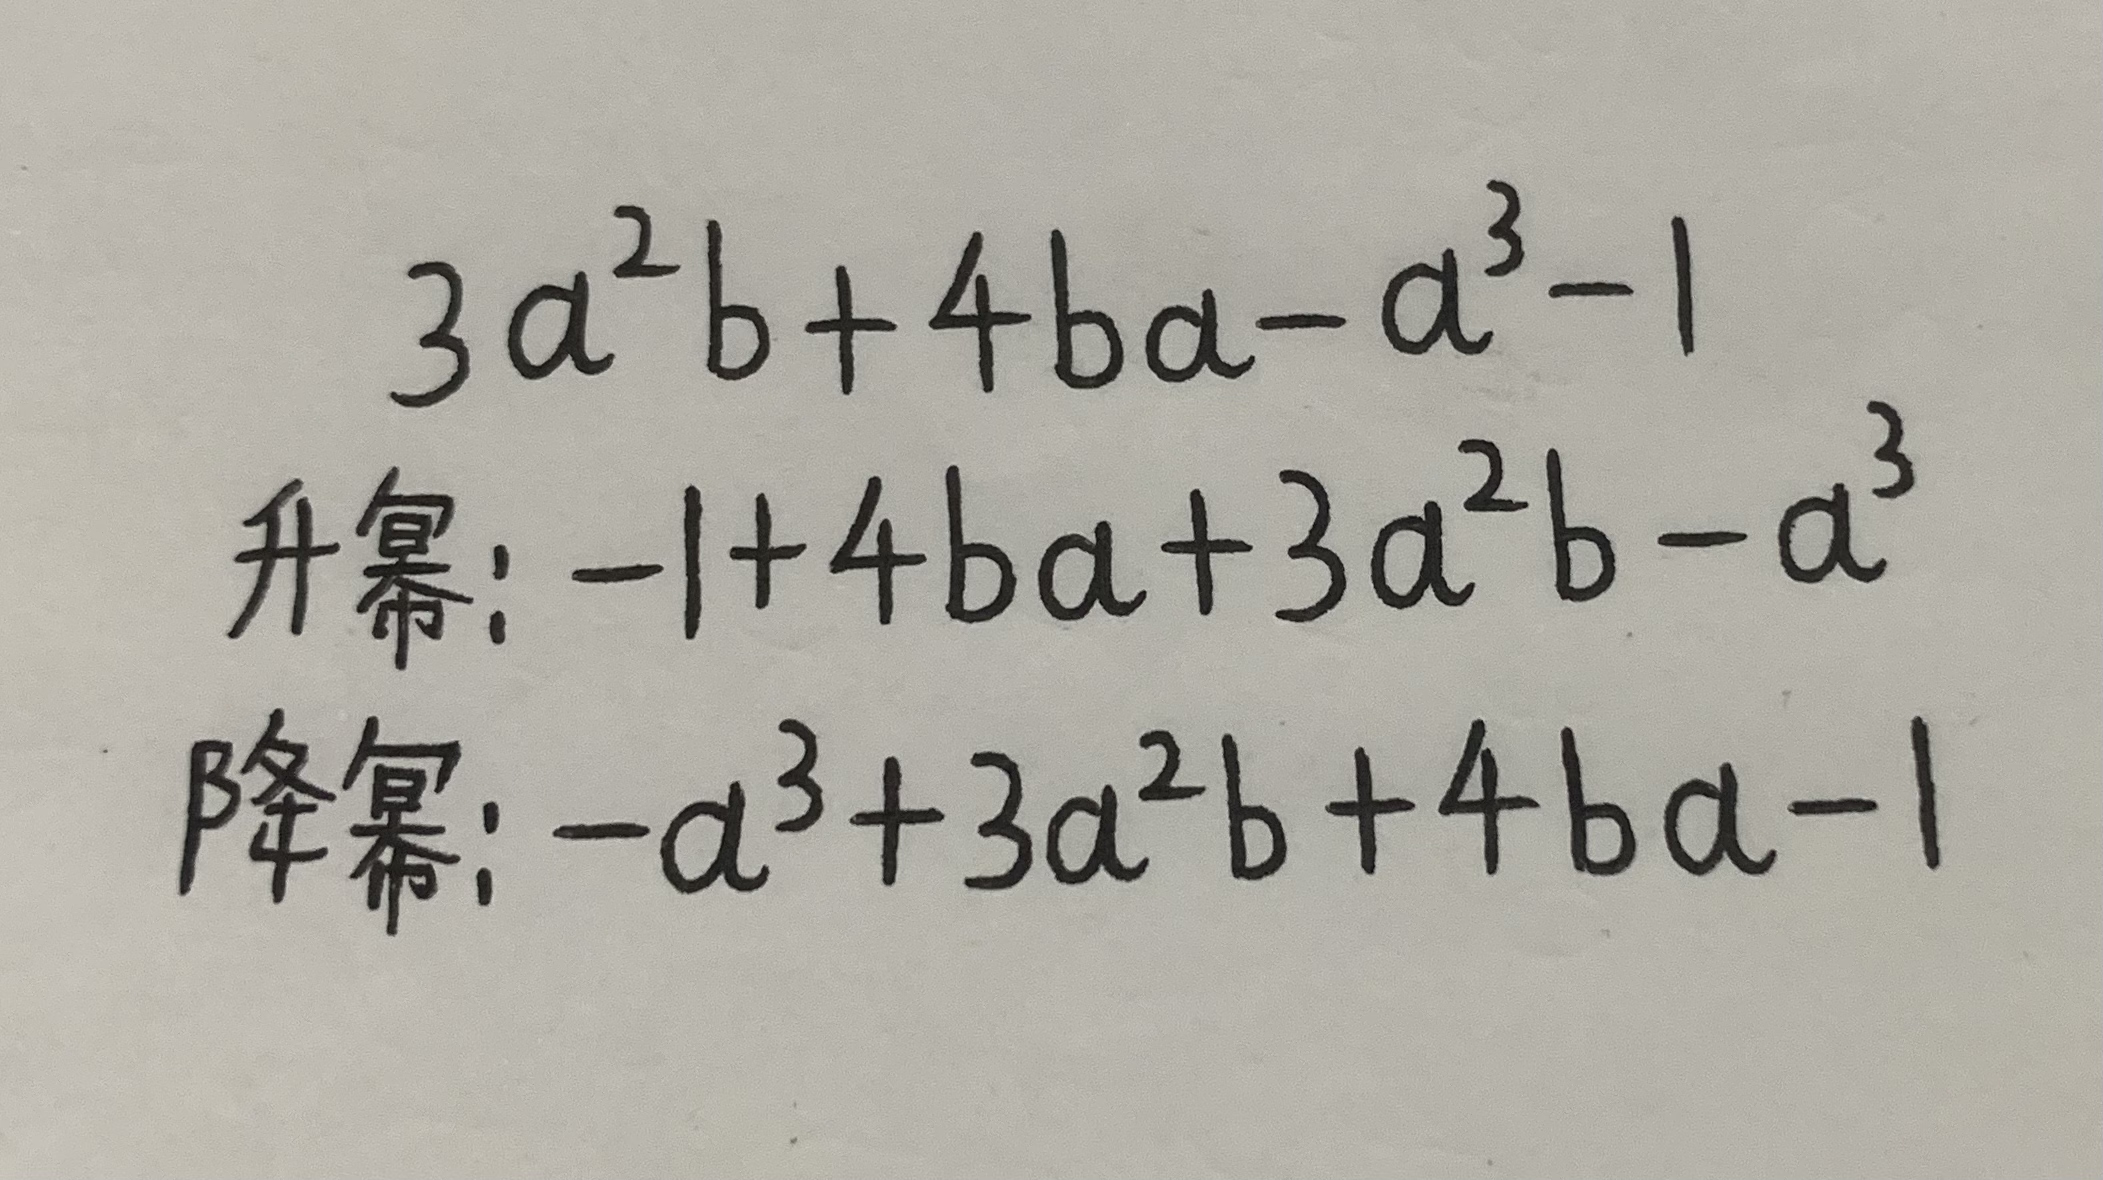 3a²b+4ba-a³-1
升幂:-1+4ba+3a²b-a³
降幂:-a³+3a²b+4ba-1